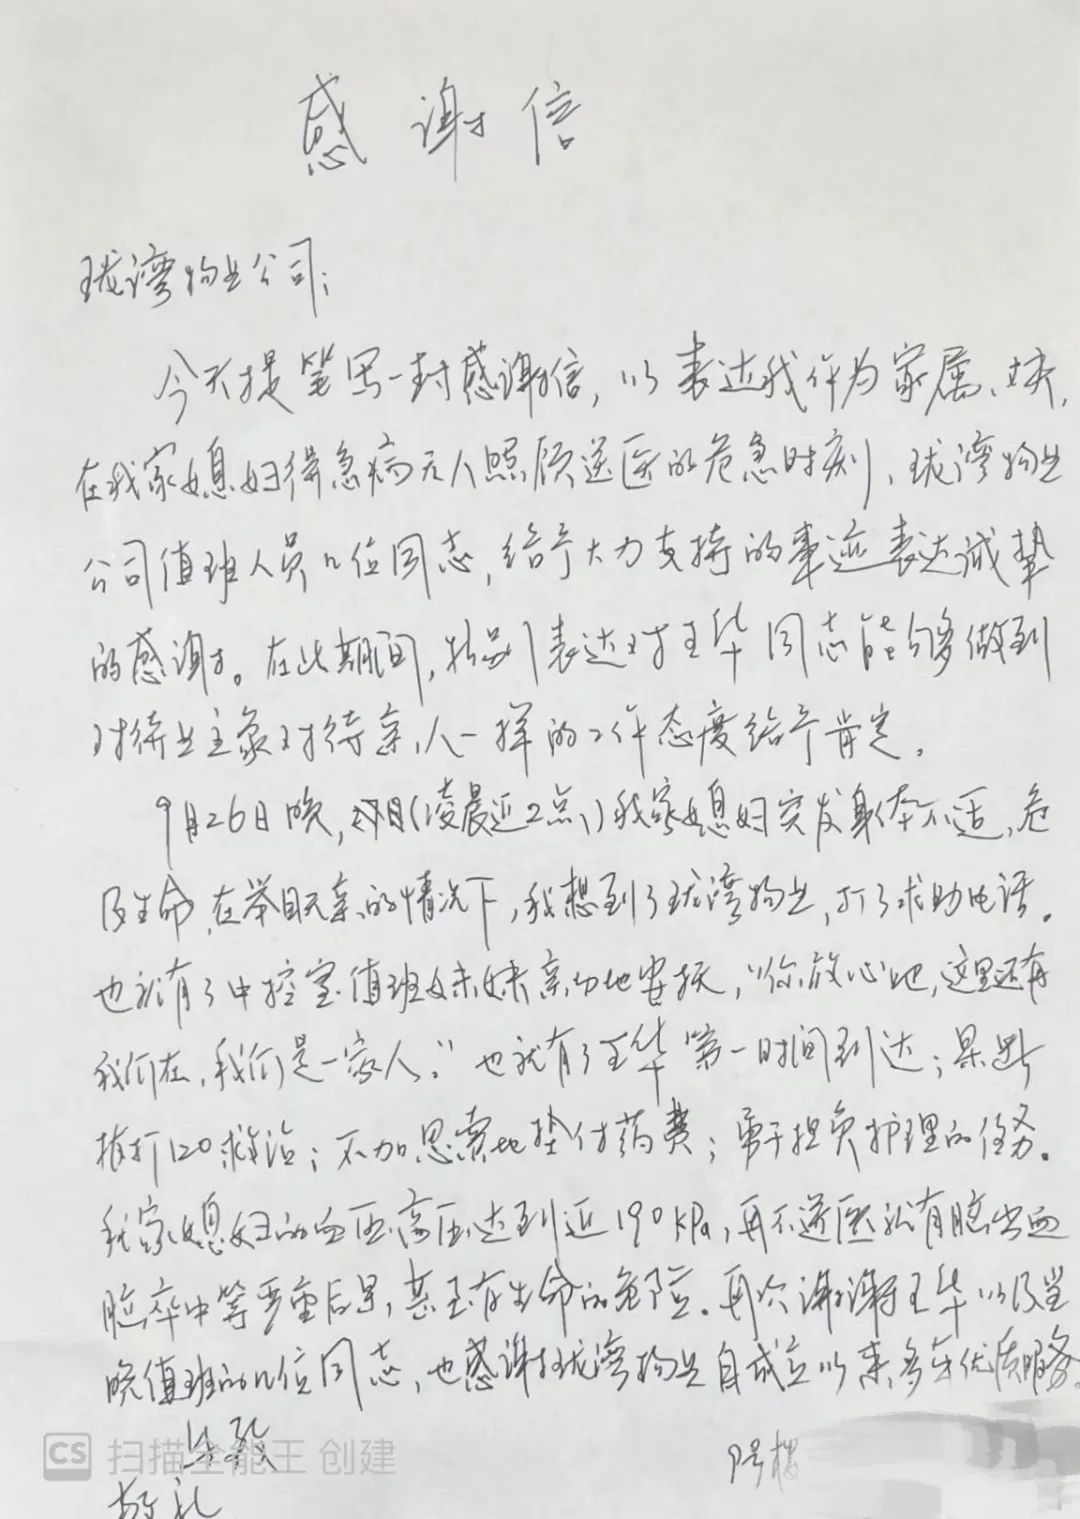 感谢信
珑湾物业公司：
今天提笔写一封感谢信，以表达我作为家属、丈夫，
在我家媳妇得急病无人照顾送医的危急时刻，珑湾物业
公司值班人员几位同志，给予大力支持的事迹表达诚挚
的感谢。在此期间，特别表达对王华同志能够做到
对待业主象对待亲人一样的工作态度给予肯定。
9月26日晚，（凌晨近2点）我家媳妇突发身体不适，危
及生命，在举目无亲的情况下，我想到了珑湾物业，打了求助电话。
也就有了中控室值班妹妹亲切地安抚，“你放心地，这里还有
我们在，我们是一家人。”也就有了王华第一时间到达；果断
拨打120救治；不加思索地垫付药费；勇于担负护理的任务。
我家媳妇的血压高压达到近190kPa，再不送医就有脑出血
脑卒中等严重后果，甚至有生命的危险。再次谢谢王华以及当
晚值班的几位同志，也感谢珑湾物业自成立以来多年优质服务。
此致
敬礼
9号楼
CS 扫描全能王 创建